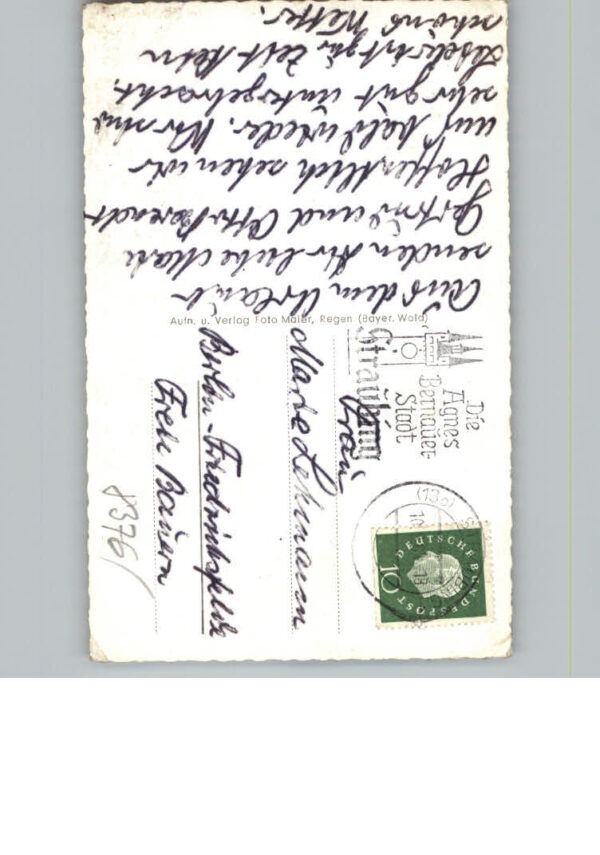 Aus dem Urlaub
senden Ihr liebe
Gertrud und Otto
Hoffentlich sehen wir
uns bald wieder. Wir sind
sehr gut untergebracht.
Leider ist zur Zeit kein
schöns Wetter.
Aufn. u. Verlag Foto Maier, Regen (Bayer. Wald)
Die
Agnes
Bernauer-
Stadt
Straubing
(13a)
DEUTSCHE BUNDESPOST
10
Frau
Marie Lehmann
Berlin-Friedrichsfelde
8376/